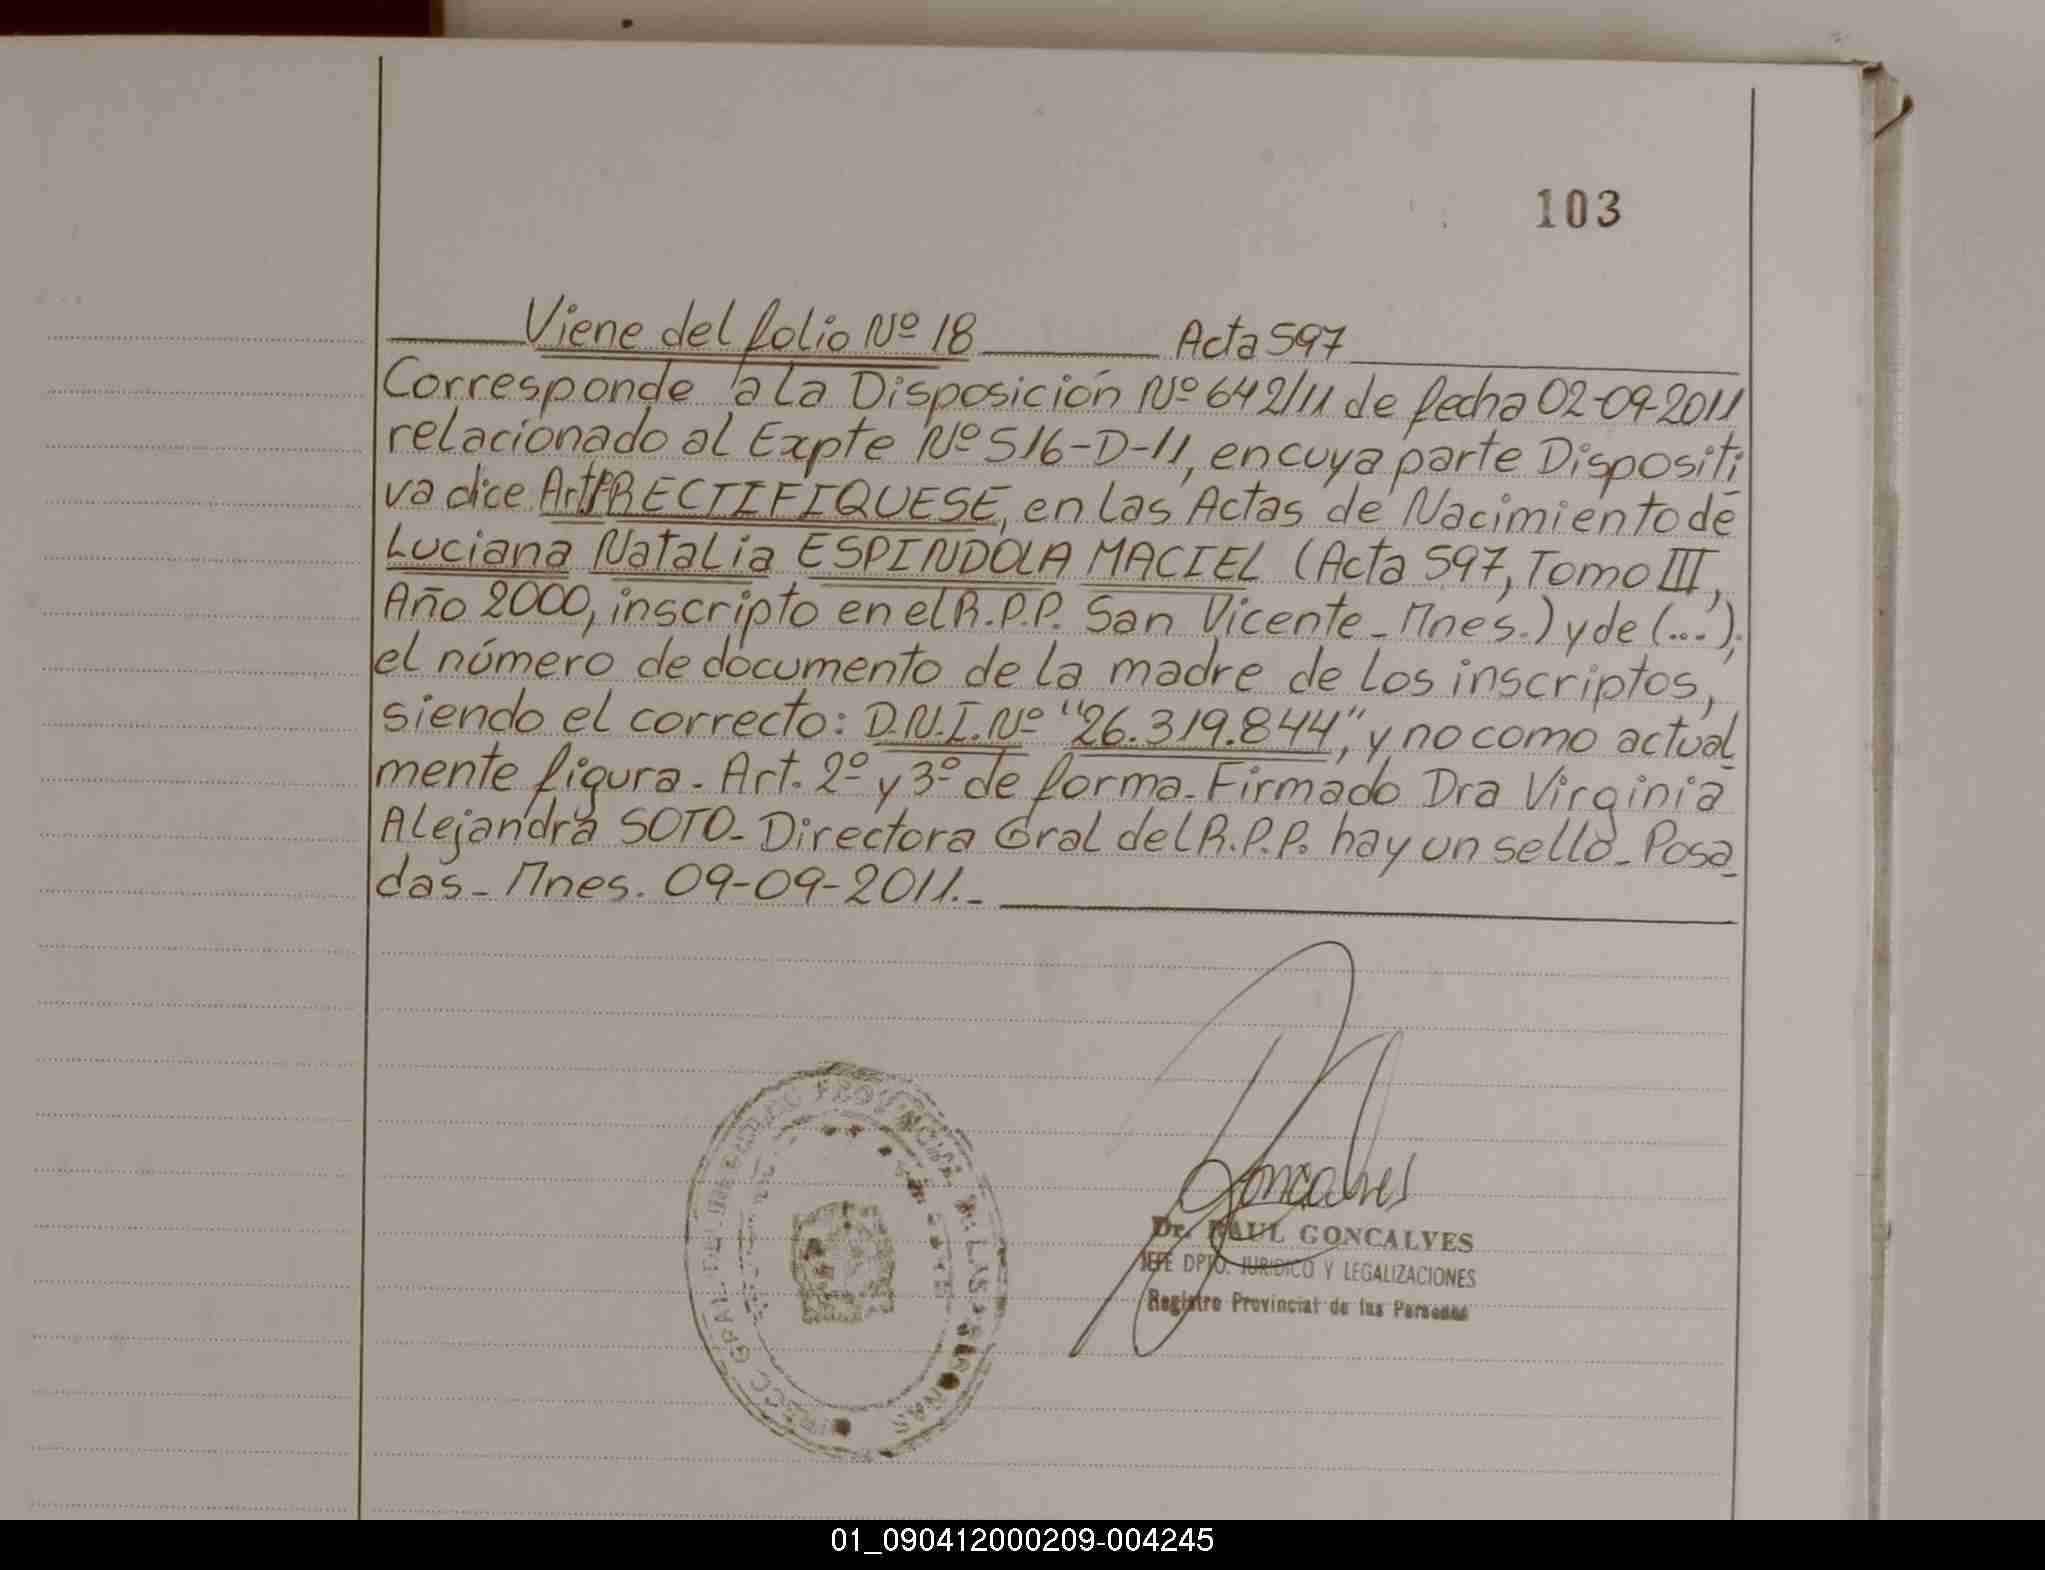 103
Viene del folio Nº 18 Acta 597
Corresponde a la Disposición Nº 642/11 de fecha 02-09-2011
relacionado al Expte Nº 516-D-11, en cuya parte Dispositi
va dice Art 1º RECTIFIQUESE, en las Actas de Nacimiento de
Luciana Natalia ESPINDOLA MACIEL (Acta 597, Tomo III,
Año 2000, inscripto en el R.P.P. San Vicente - Mnes.) y de (...),
el número de documento de la madre de los inscriptos,
siendo el correcto: D.N.I. Nº "26.319.844", y no como actual
mente figura. Art. 2º y 3º de forma. Firmado Dra Virginia
Alejandra SOTO - Directora Gral del R.P.P. hay un sello - Posa
das - Mnes. 09-09-2011.-
Goncalves
Dr. RAUL GONCALVES
JEFE DPTO. JURIDICO Y LEGALIZACIONES
Registro Provincial de las Personas
DIRECC GRAL DEL REGISTRO PROVINCIAL DE LAS PERSONAS
01_090412000209-004245